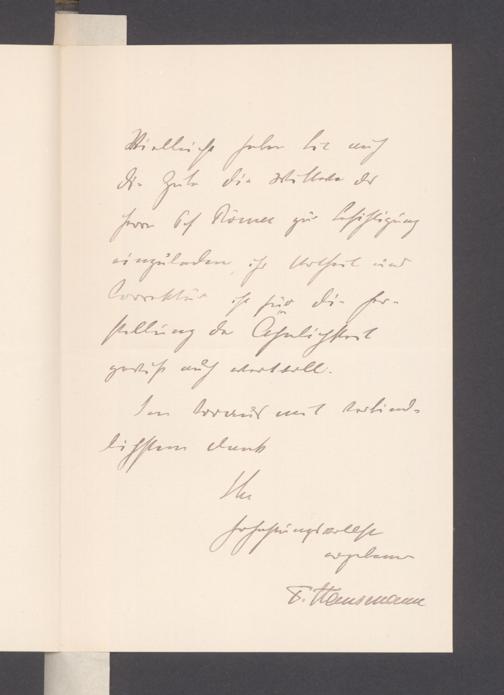 Vielleicht haben Sie auch
die Güte die Wittwe des
Herrn Römer zur Besichtigung
einzuladen, ihr Urtheil und
Correktur ist für die Her-
stellung der Ähnlichkeit
gewiß auch wertvoll.
Im Voraus mit verbind-
lichstem Dank
Ihr
hochachtungsvollst
ergebener